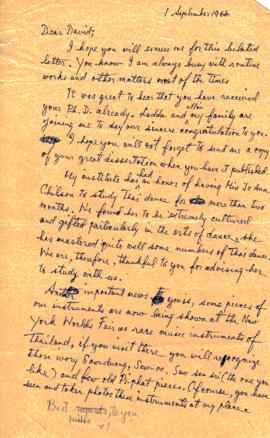 1 September 1964
Dear David;
I hope you will excuse me for this belated
letter. You know I am always busy with routine
works and other matters most of the times.
It was great to hear that you have received
your Ph.D. already. Ladda and all my family are
joining me to say our sincere congratulation to you.
I hope you will not forget to send me a copy
of your great dissertation when you have it published.
My institute has had an honor of having Miss Jo Ann
to study Thai dance for more than two
months. We found her to be extremely cultured
and gifted particularly in the arts of dance. She
has mastered quite well some numbers of Thai dance.
We are, therefore, thankful to you for advising her
to study with us.
important news to you is, some pieces of
our instruments are now being shown at the New
York World's Fair as rare music instruments of
Thailand, if you visit there you will recognize
those ivory Sawduang, Saw-oo, Saw sam sai (the one you
like) and few old Pi-phat pieces. Of course, you have
seen and taken photos these instruments at my place.
Best wishes to you